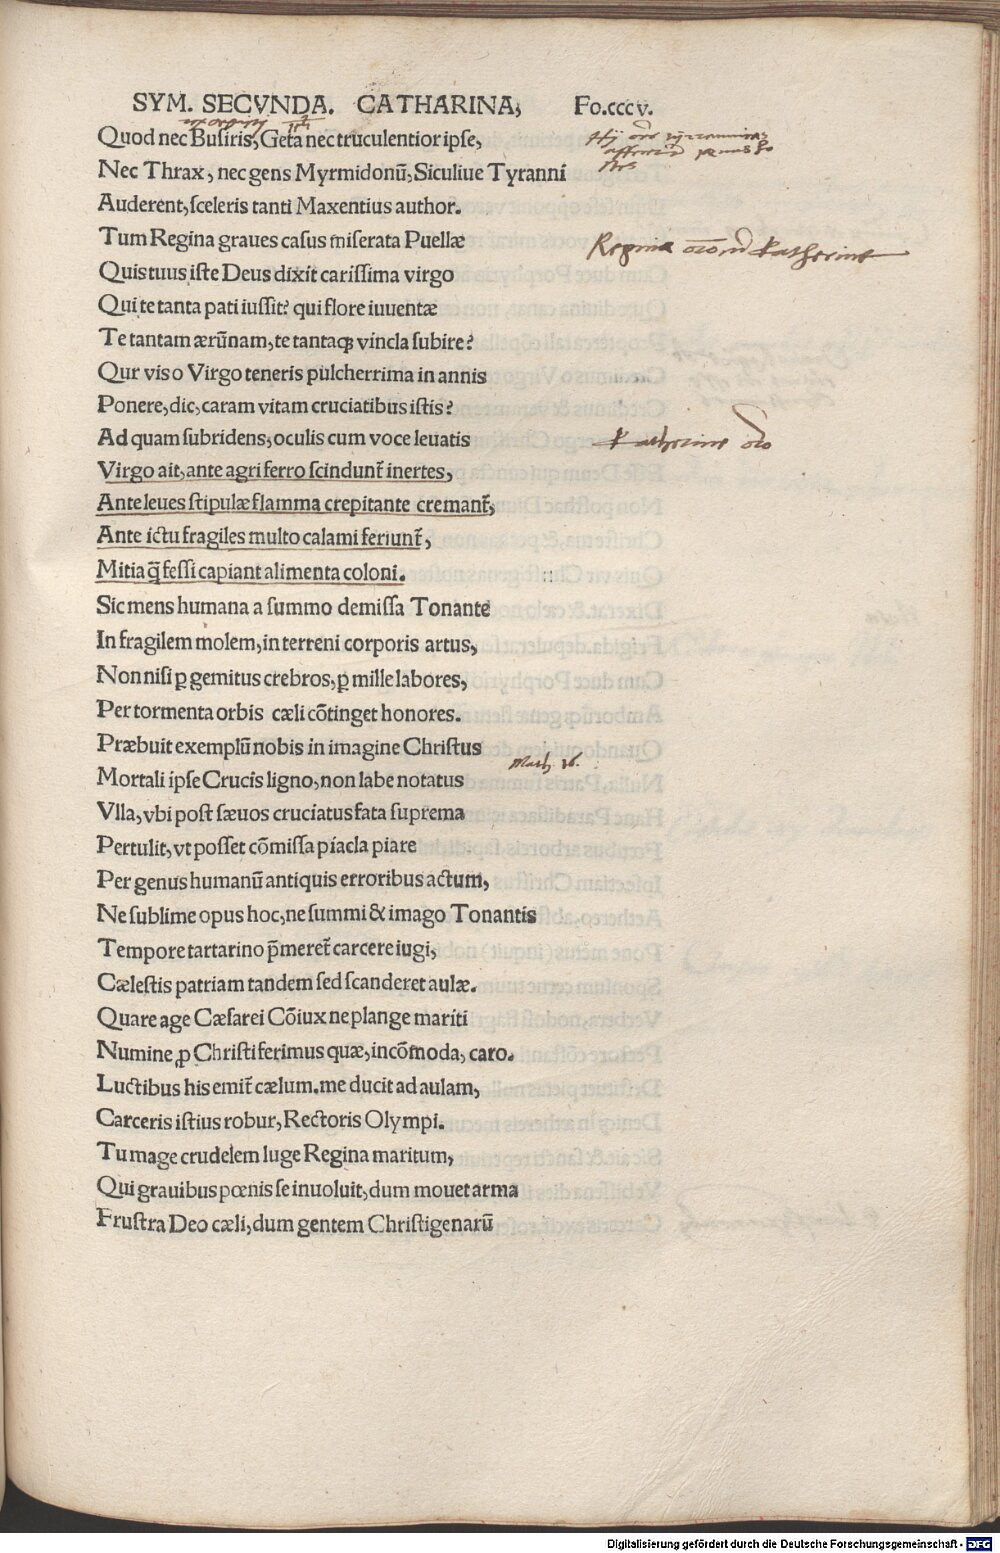 SYM. SECVNDA. CATHARINA, Fo.cccv.
Quod nec Busiris, Geta nec truculentior ipse,
Nec Thrax, nec gens Myrmidonũ, Siculiue Tyranni
Auderent, sceleris tanti Maxentius author.
Tum Regina graues casus miserata Puellæ
Regina
Quis tuus iste Deus dixit carissima virgo
Qui te tanta pati iussit? qui flore iuuentæ
Te tantam ærũnam, te tantaqꝫ vincla subire?
Qur vis o Virgo teneris pulcherrima in annis
Ponere, dic, caram vitam cruciatibus istis?
Ad quam subridens, oculis cum voce leuatis
Katherine
Virgo ait, ante agri ferro scindunt᷑ inertes,
Ante leues stipulæ flamma crepitante cremant᷑,
Ante ictu fragiles multo calami feriunt᷑,
Mitia q̃ fessi capiant alimenta coloni.
Sic mens humana a summo demissa Tonante
In fragilem molem, in terreni corporis artus,
Non nisi ꝑ gemitus crebros, ꝑ mille labores,
Per tormenta orbis cæli cõtinget honores.
Præbuit exemplũ nobis in imagine Christus
Math 16.
Mortali ipse Crucis ligno, non labe notatus
Vlla, vbi post sæuos cruciatus fata suprema
Pertulit, vt posset cõmissa piacla piare
Per genus humanũ antiquis erroribus actum,
Ne sublime opus hoc, ne summi & imago Tonantis
Tempore tartarino p̃meret᷑ carcere iugi,
Cælestis patriam tandem sed scanderet aulæ.
Quare age Cæsarei Cõiux ne plange mariti
Numine, ꝓ Christi ferimus quæ, incõmoda, caro.
Luctibus his emit᷑ cælum. me ducit ad aulam,
Carceris istius robur, Rectoris Olympi.
Tu mage crudelem luge Regina maritum,
Qui grauibus pœnis se inuoluit, dum mouet arma
Frustra Deo cæli, dum gentem Christigenarũ
Digitalisierung gefördert durch die Deutsche Forschungsgemeinschaft - DFG